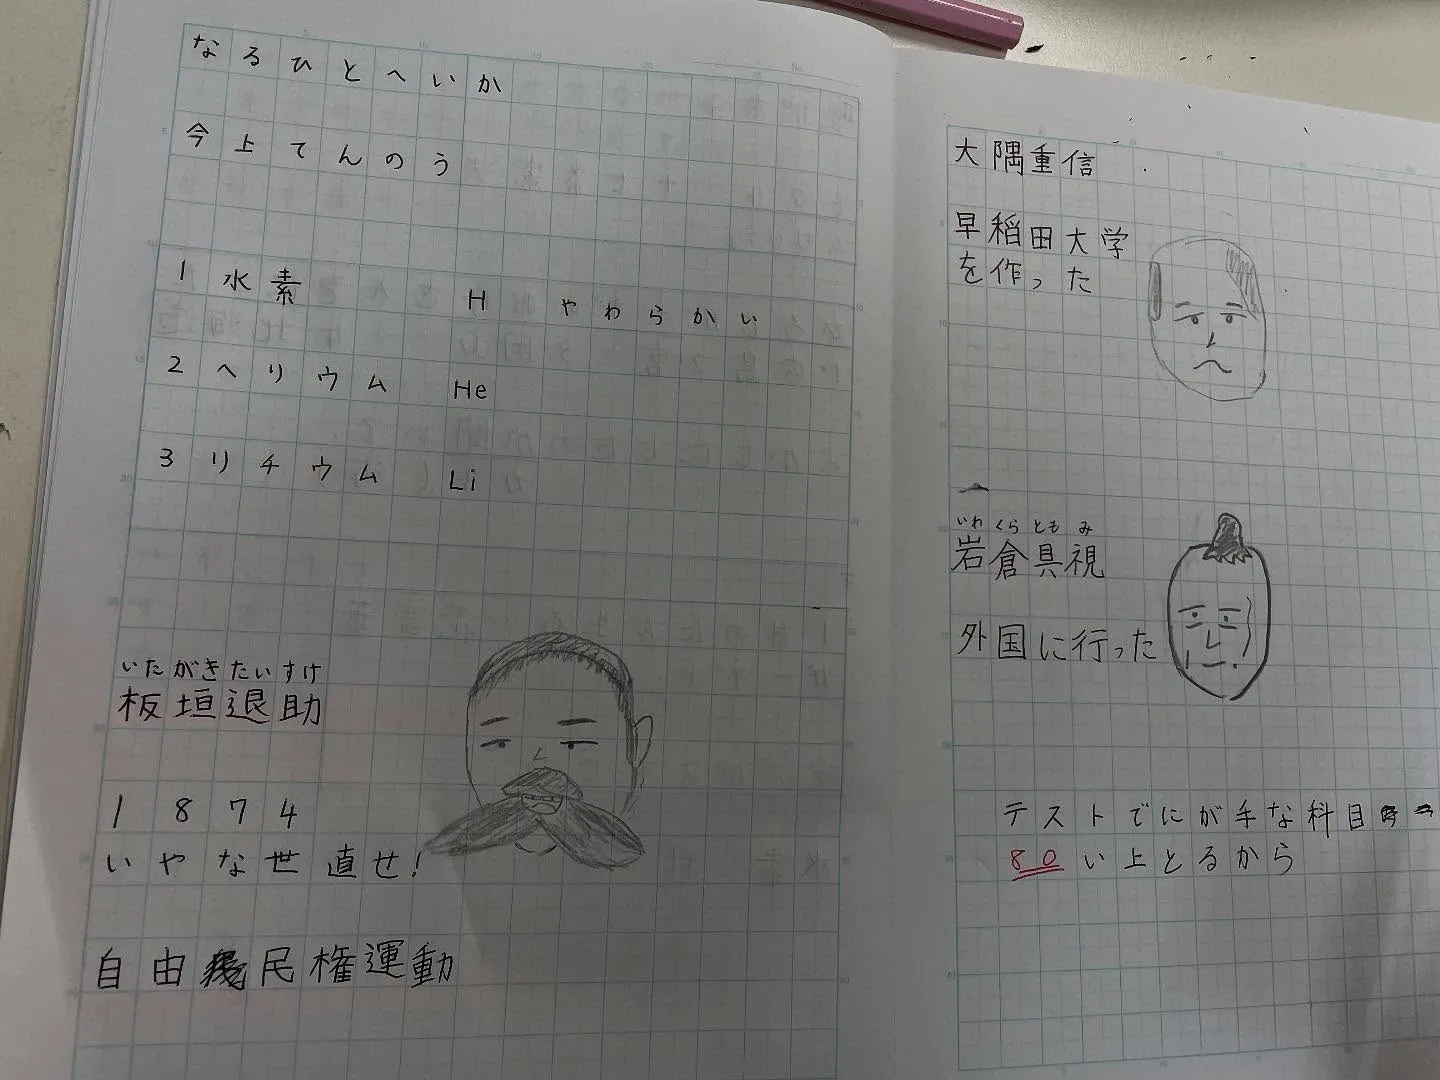 なるひとへいか
今上てんのう
1 水素 H やわらかい
2 ヘリウム He
3 リチウム Li
いたがきたいすけ
板垣退助
1874
いやな世直せ!
自由民権運動
大隅重信
早稲田大学
を作った
いわくらともみ
岩倉具視
外国に行った
テストでにが手な科目
80い上とるから